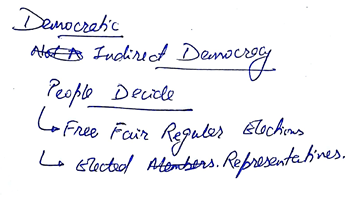 Democratic
Indirect Democracy
People Decide
↳ Free Fair Regular Elections
↳ Elected Members. Representatives.